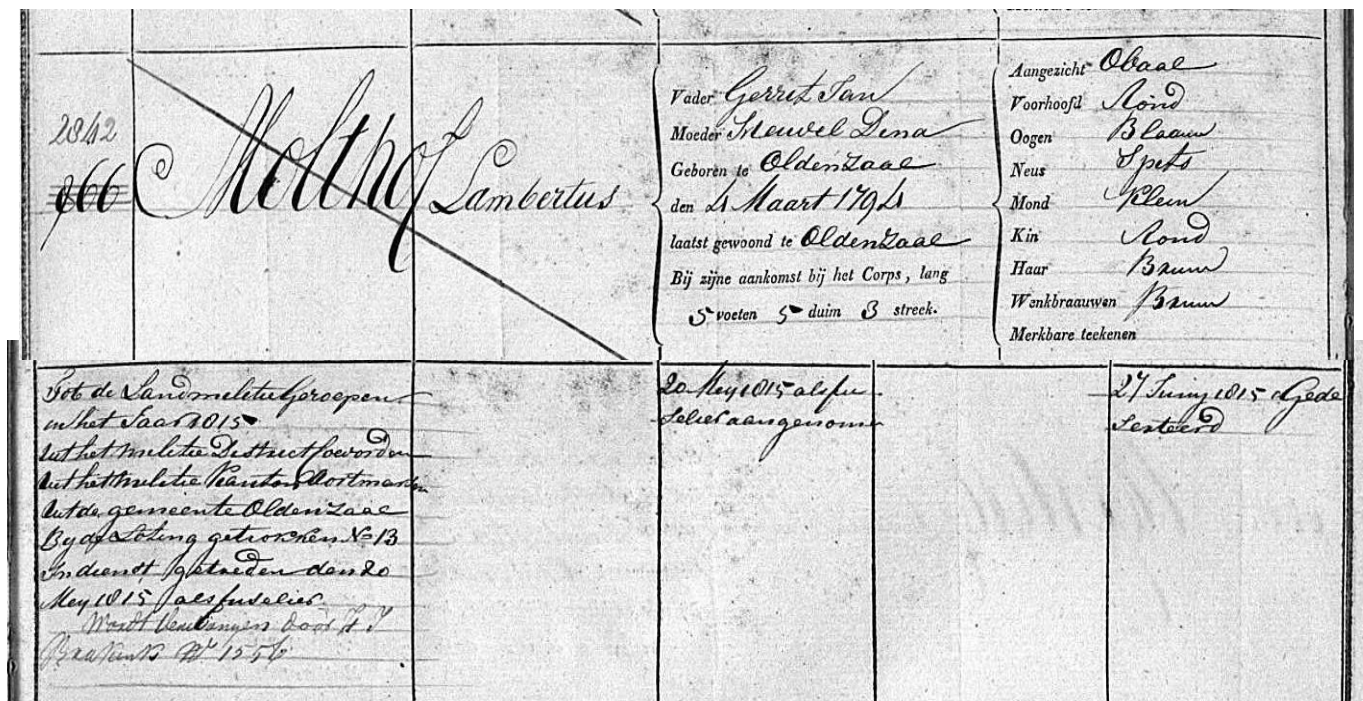 2842
866
Molthof
Lambertus
Vader Gerrit Jan
Moeder Meuwel Dina
Geboren te Oldenzaal
den 4 Maart 1794
laatst gewoond te Oldenzaal
Bij zijne aankomst bij het Corps, lang
5 voeten 5 duim 3 streek.
Aangezicht Ovaal
Voorhoofd Rond
Oogen Blaauw
Neus Spits
Mond Klein
Kin Rond
Haar Bruin
Wenkbraauwen Bruin
Merkbare teekenen
Tot de Landmilitie Geroepen
in het Jaar 1815
Uit het militie District Coevorden
Uit het militie Kanton Ootmarsen
Uit de gemeente Oldenzaal
By de Loting getrokken No 13
In dienst getreden den 20
Mey 1815 als fuselier
Wordt vervangen door H J
No 1556
20 Mey 1815 als fu
selier aangenomen
27 Juny 1815 Gede
serteerd